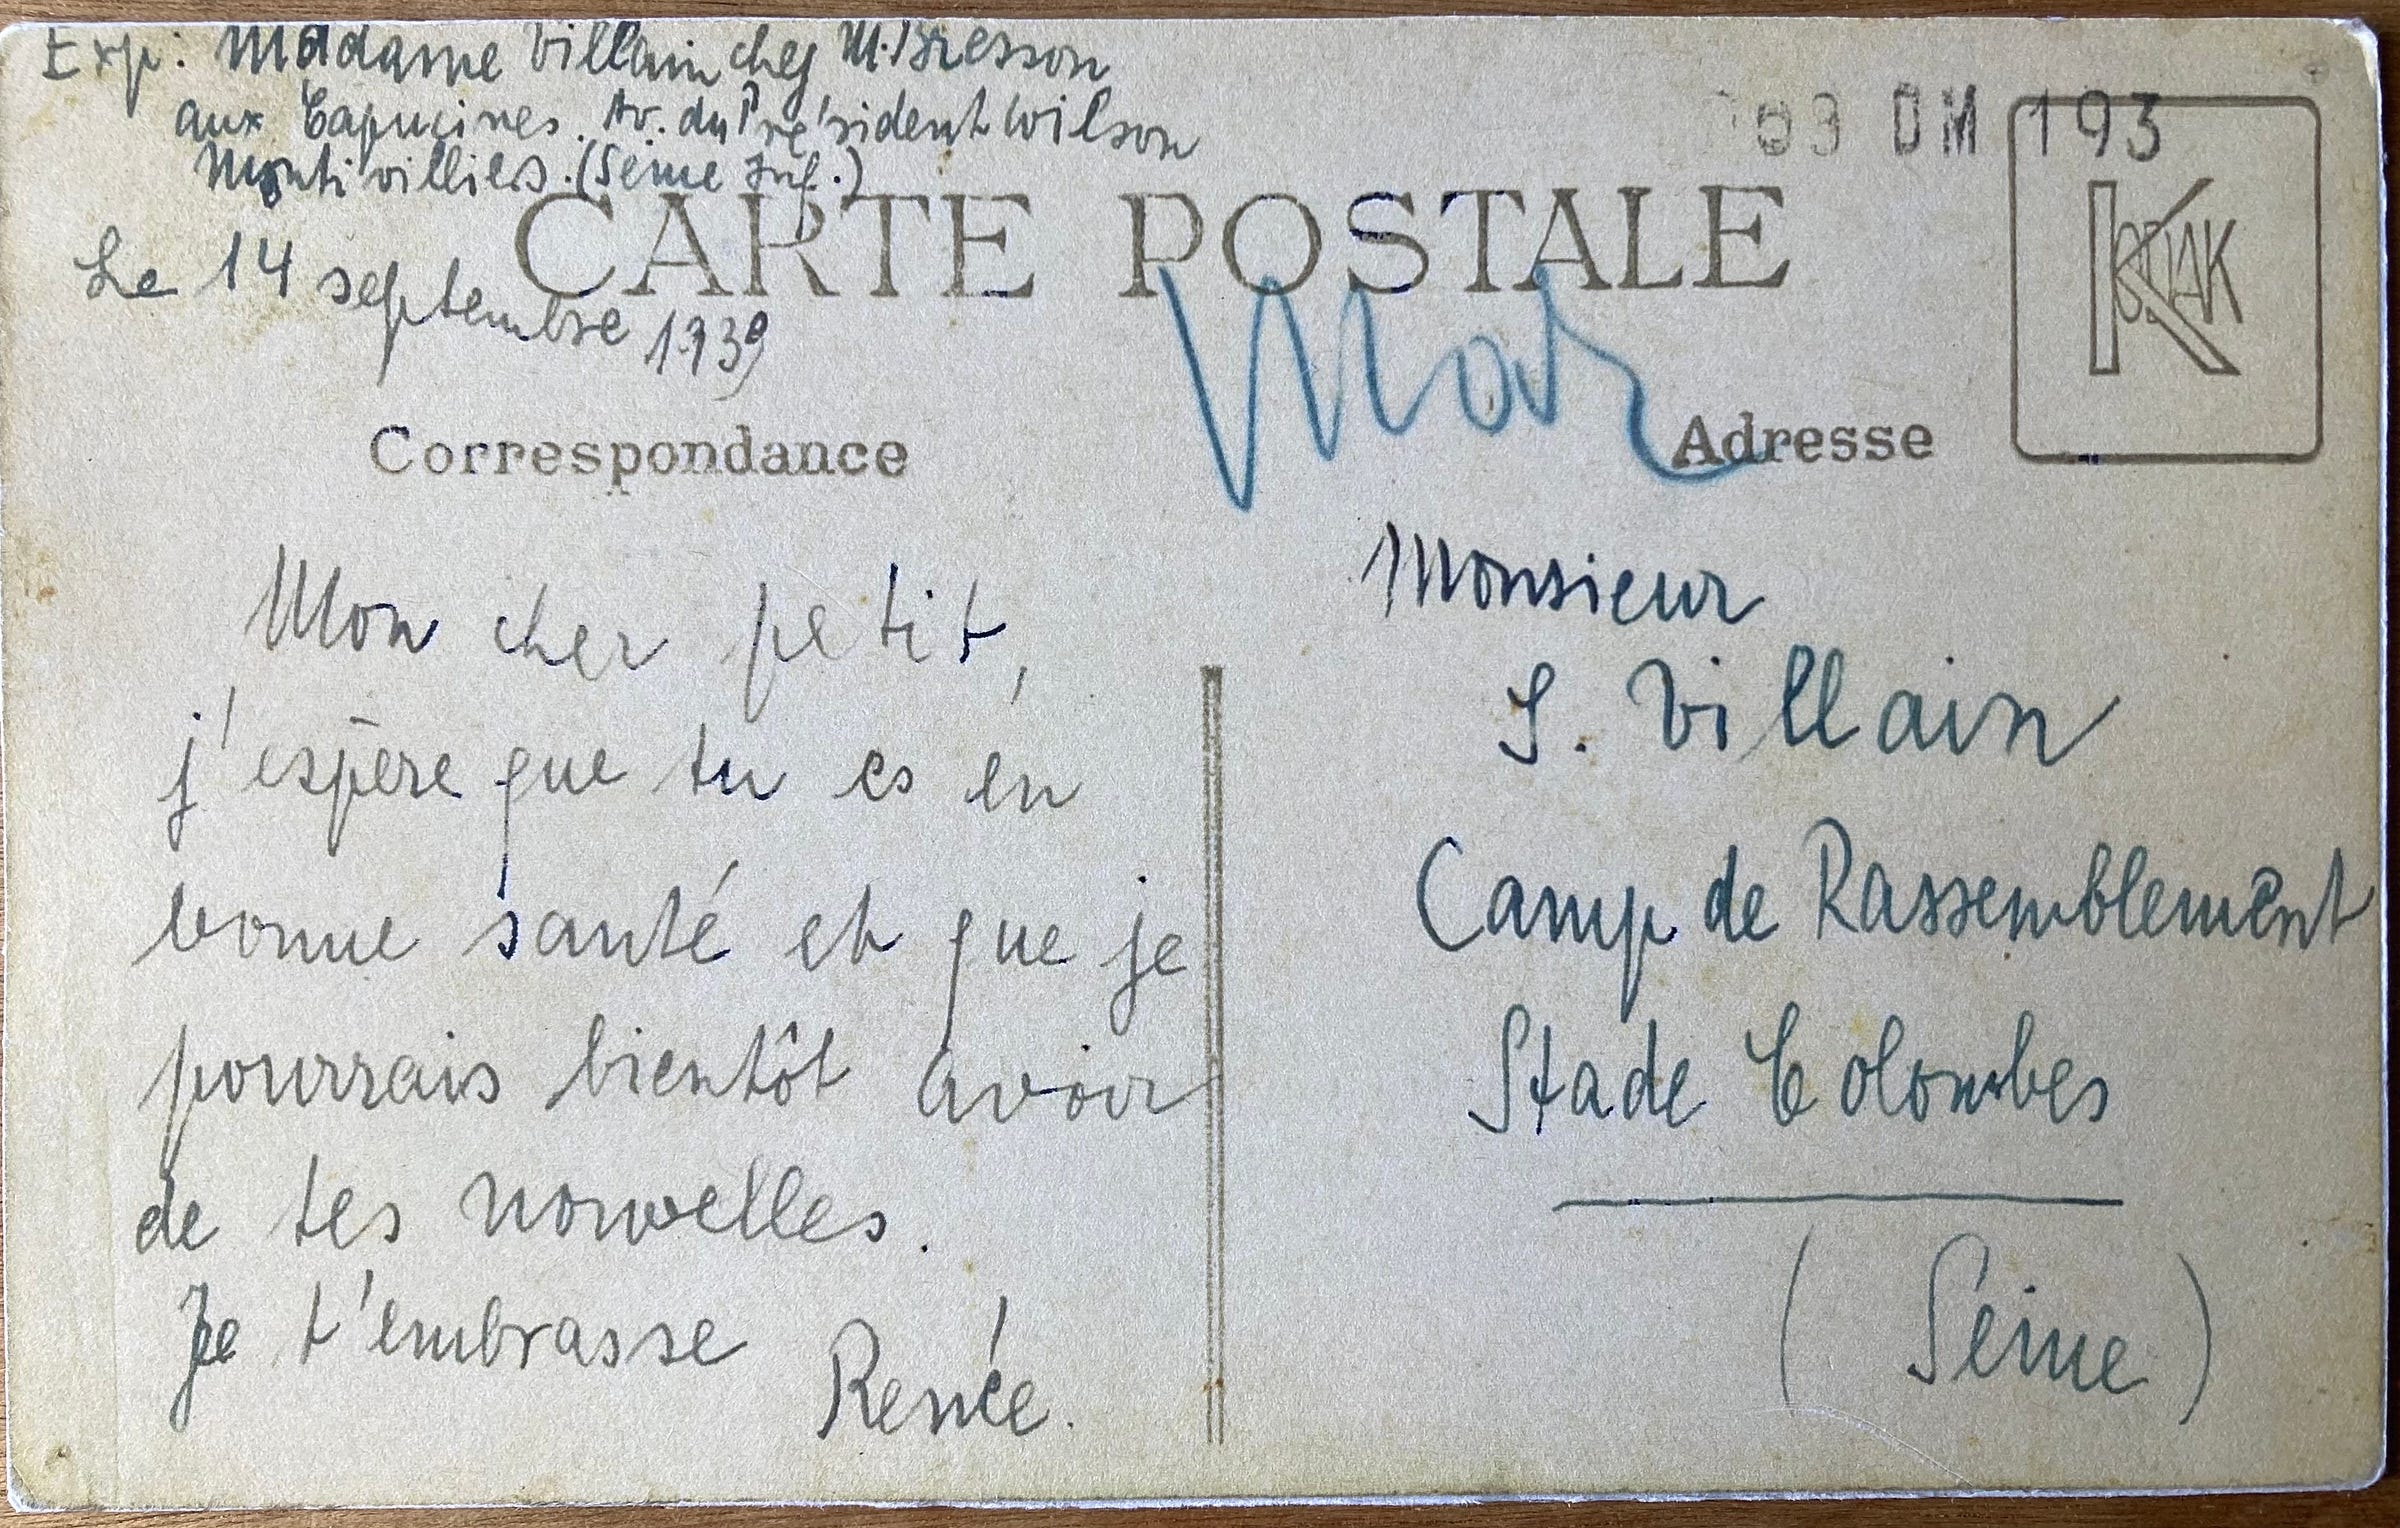 Exp: Madame Villain chez M. Bresson
aux Capucines. Av. du Président Wilson
Montivilliers. (Seine Inf.)
003 DM 193
CARTE POSTALE
KODAK
Le 14 septembre 1939
Correspondance
Adresse
Mon cher petit,
j'espère que tu es en
bonne santé et que je
pourrais bientôt avoir
de tes nouvelles.
Je t'embrasse
Renée.
Monsieur
S. Villain
Camp de Rassemblement
Stade Colombes
(Seine)